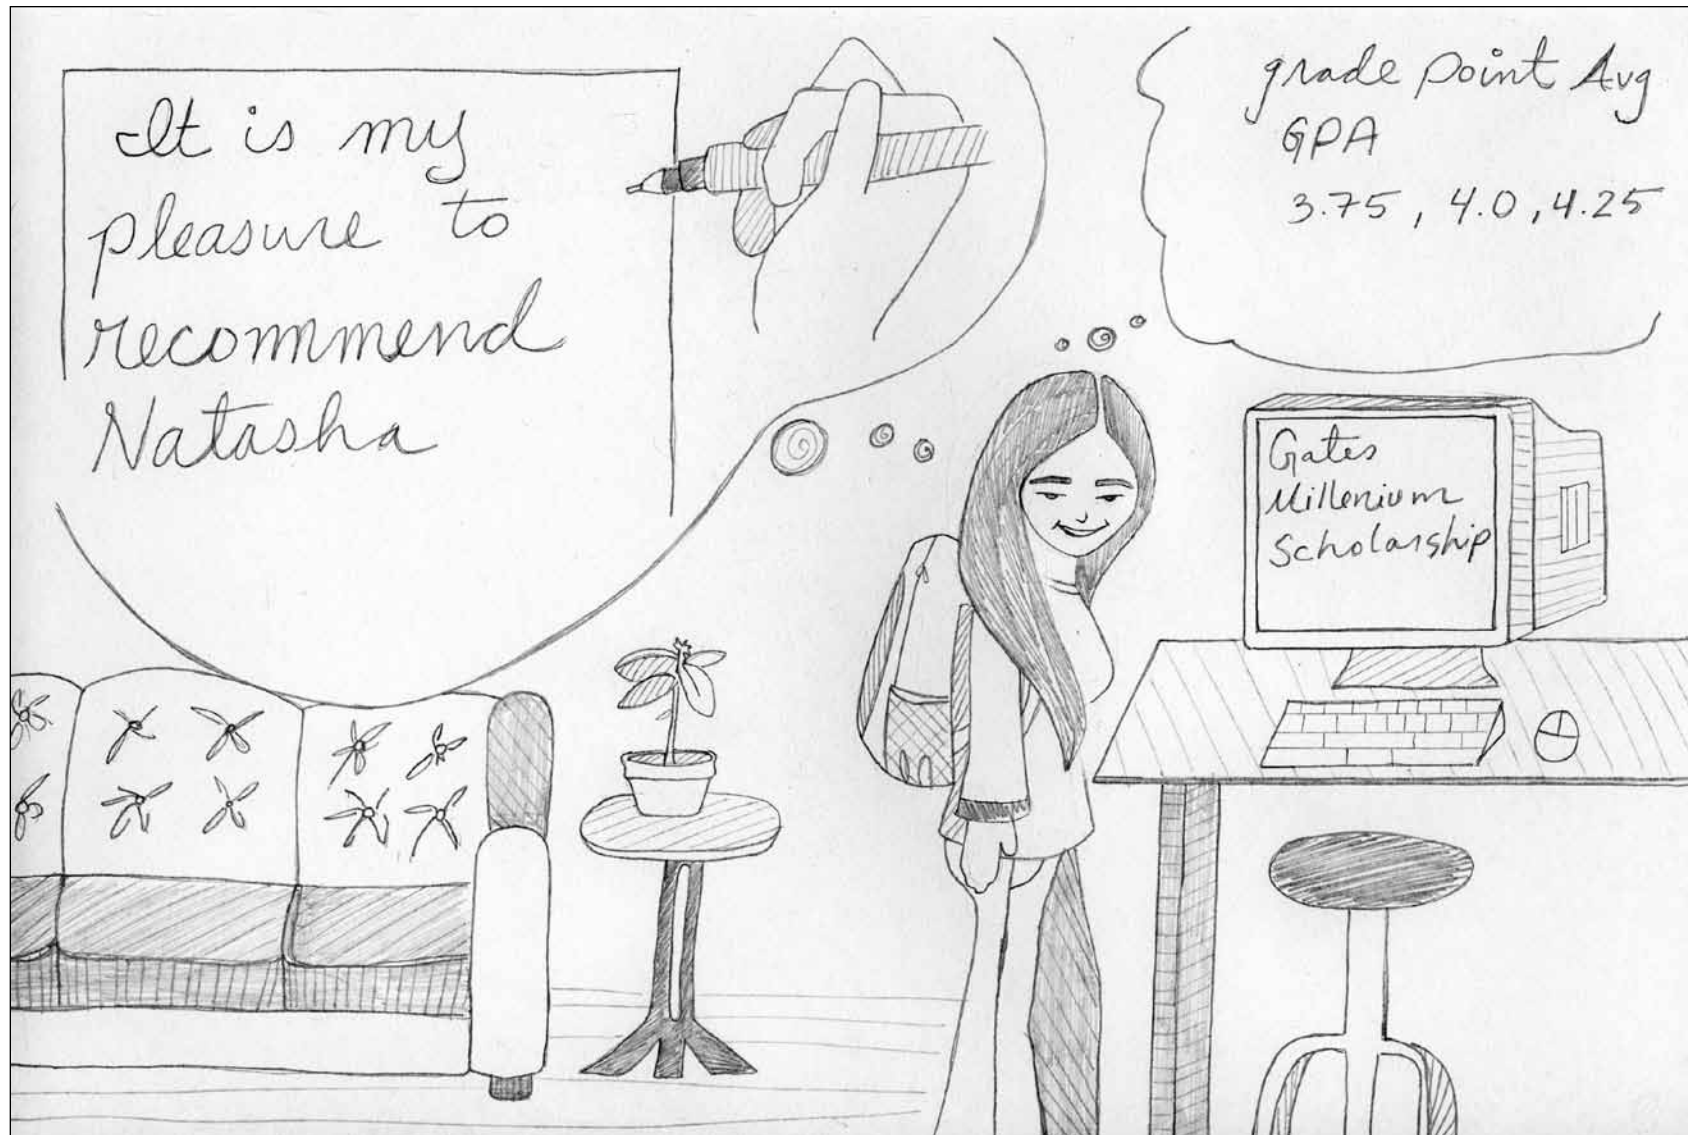 It is my
pleasure to
recommend
Natasha
grade point Avg
GPA
3.75, 4.0, 4.25
Gates
Millenium
Scholarship